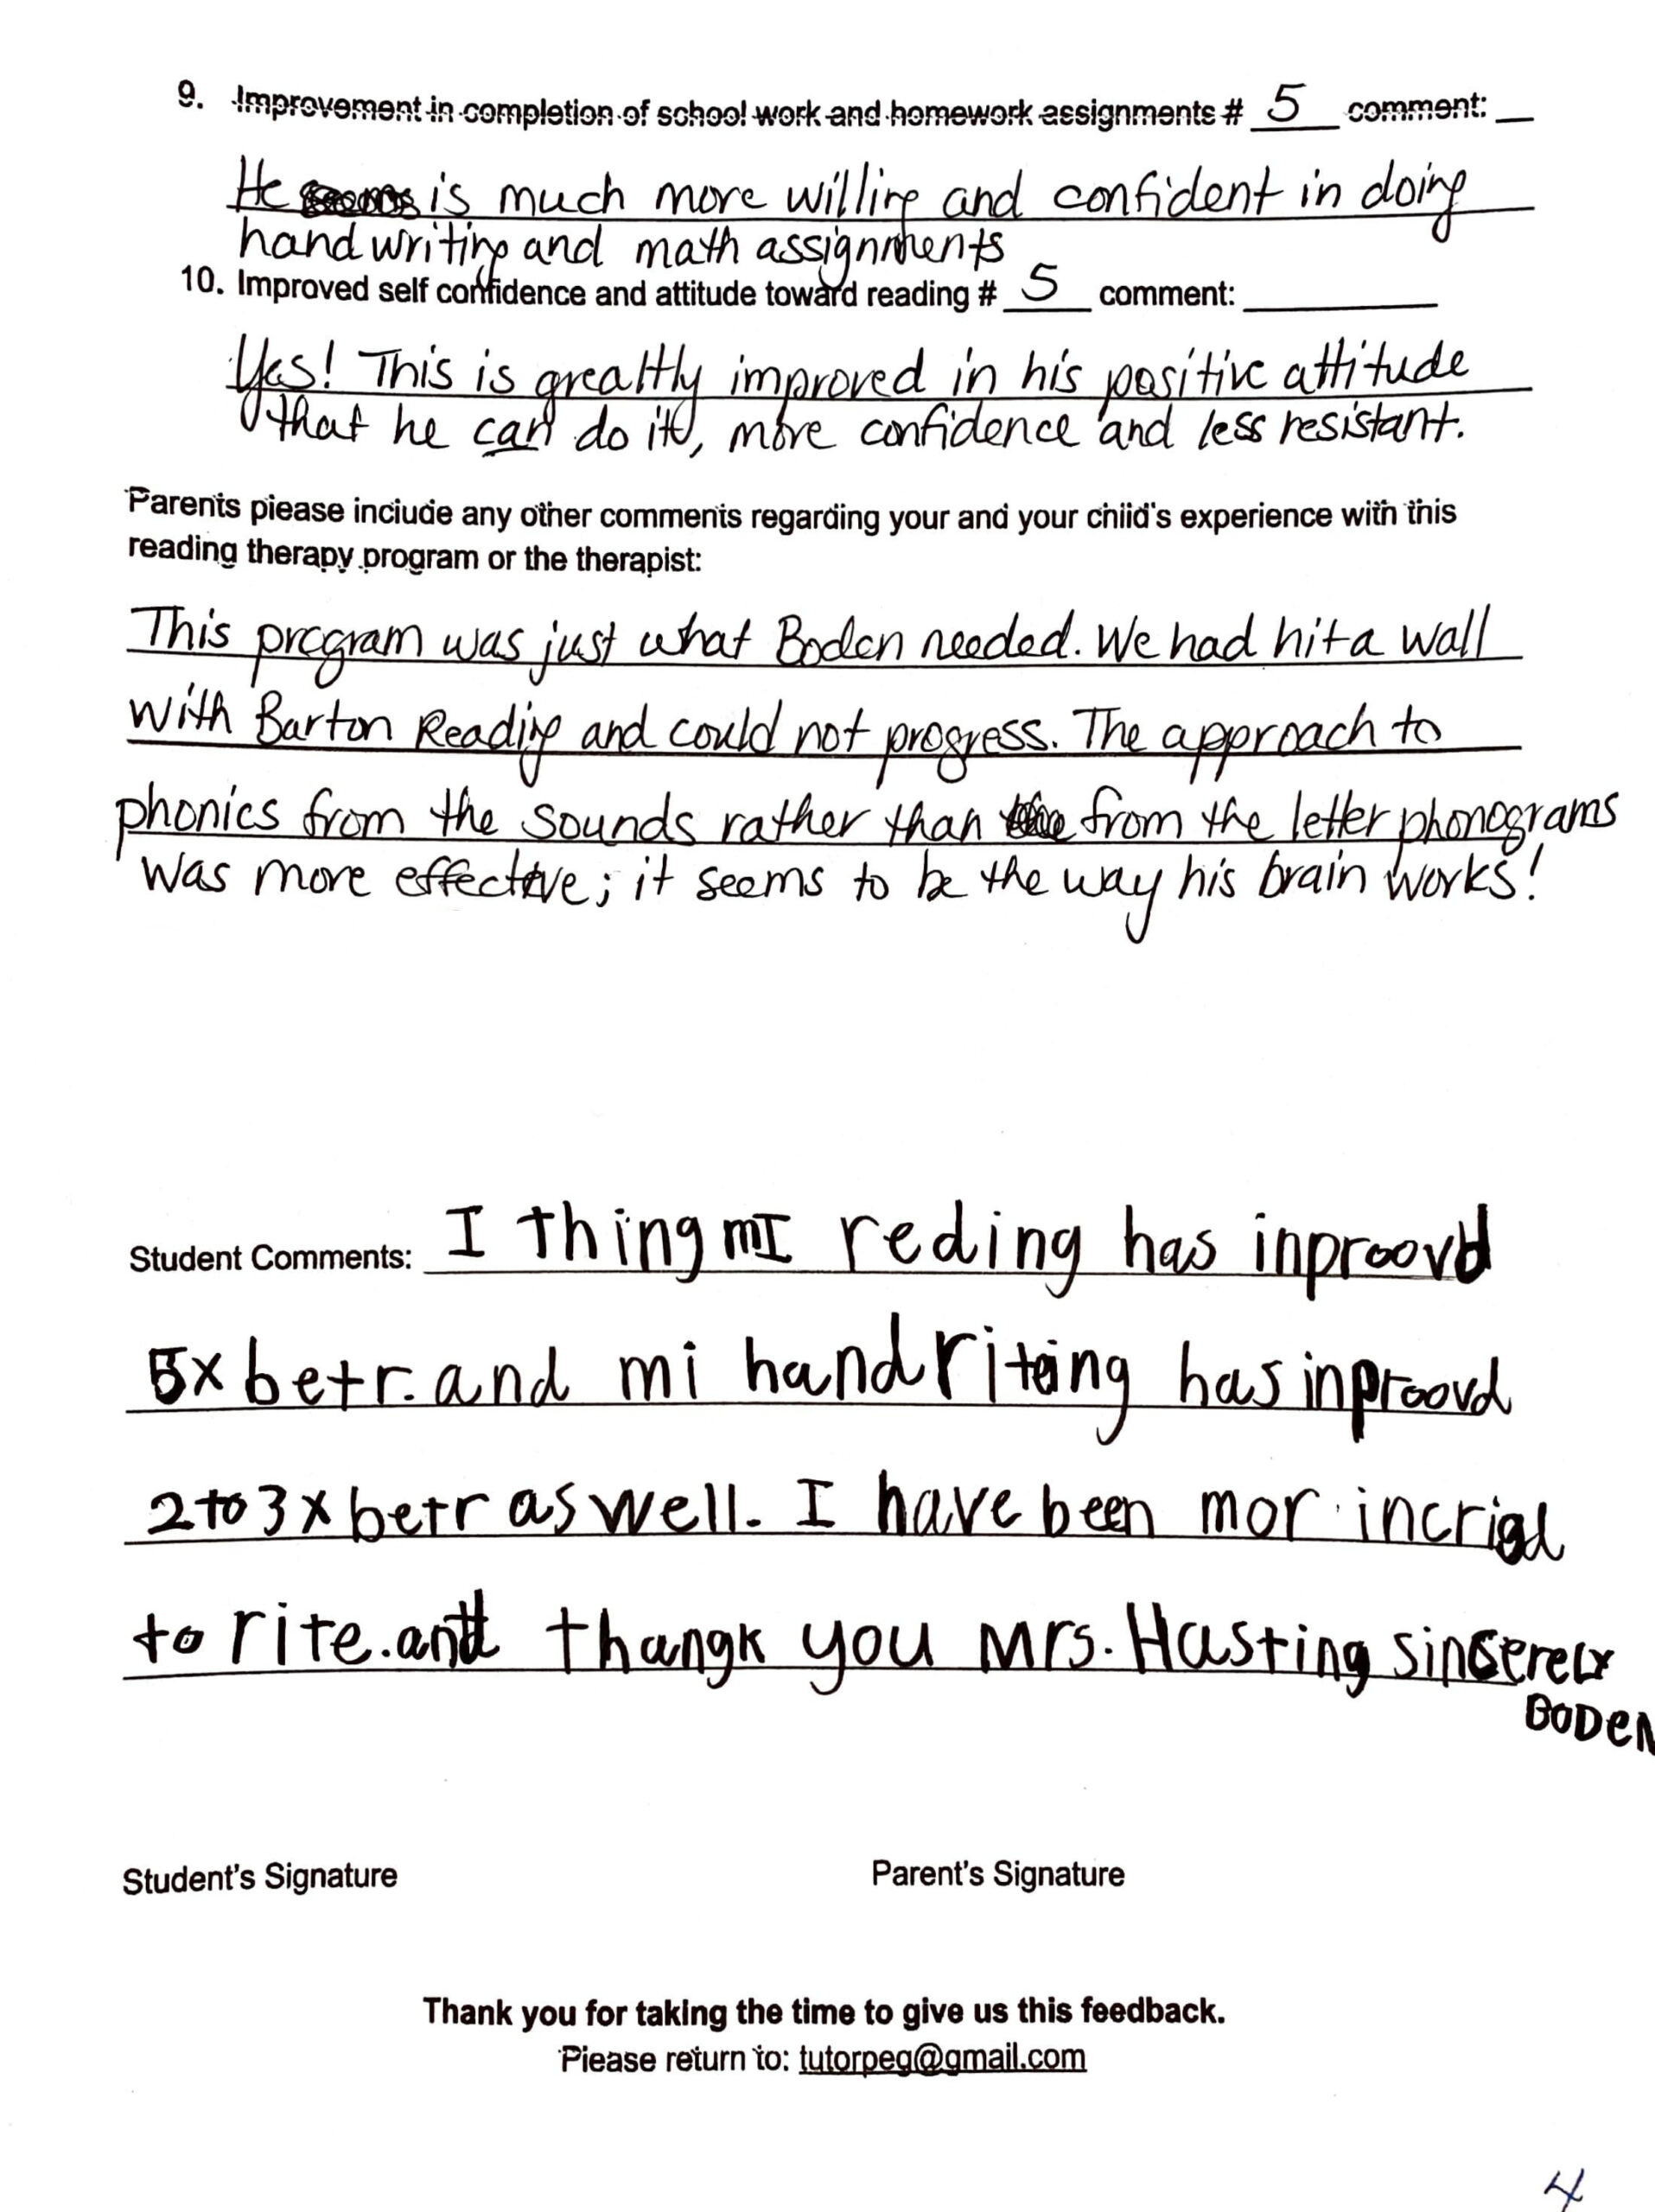 9. Improvement in completion of school work and homework assignments # 5 comment: __
He is much more willing and confident in doing
handwriting and math assignments
10. Improved self confidence and attitude toward reading # 5 comment: ____
Yes! This is grealtly improved in his positive attitude
that he can do it, more confidence and less resistant.
Parents please include any other comments regarding your and your child's experience with this
reading therapy program or the therapist:
This program was just what Boden needed. We had hit a wall
with Barton Reading and could not progress. The approach to
phonics from the sounds rather than from the letter phonograms
was more effective; it seems to be the way his brain works!
Student Comments: I thing mI reding has inproovd
5x betr. and mi handriting has inproovd
2 to 3x betr as well. I have been mor
to rite. and thangk you Mrs. Hasting sincerely
BODEN
Student's Signature Parent's Signature
Thank you for taking the time to give us this feedback.
Please return to: tutorpeg@gmail.com
4